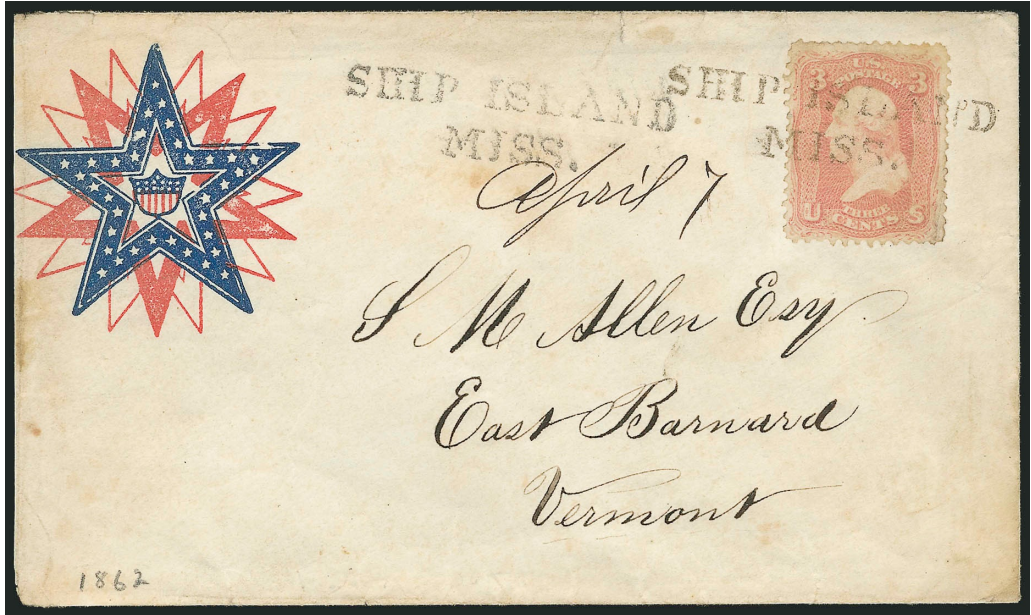 SHIP ISLAND
MISS.
SHIP ISLAND
MISS.
3 U.S. 3
POSTAGE
U CENTS S
April 7
S M Allen Esq.
East Barnard
Vermont
1862